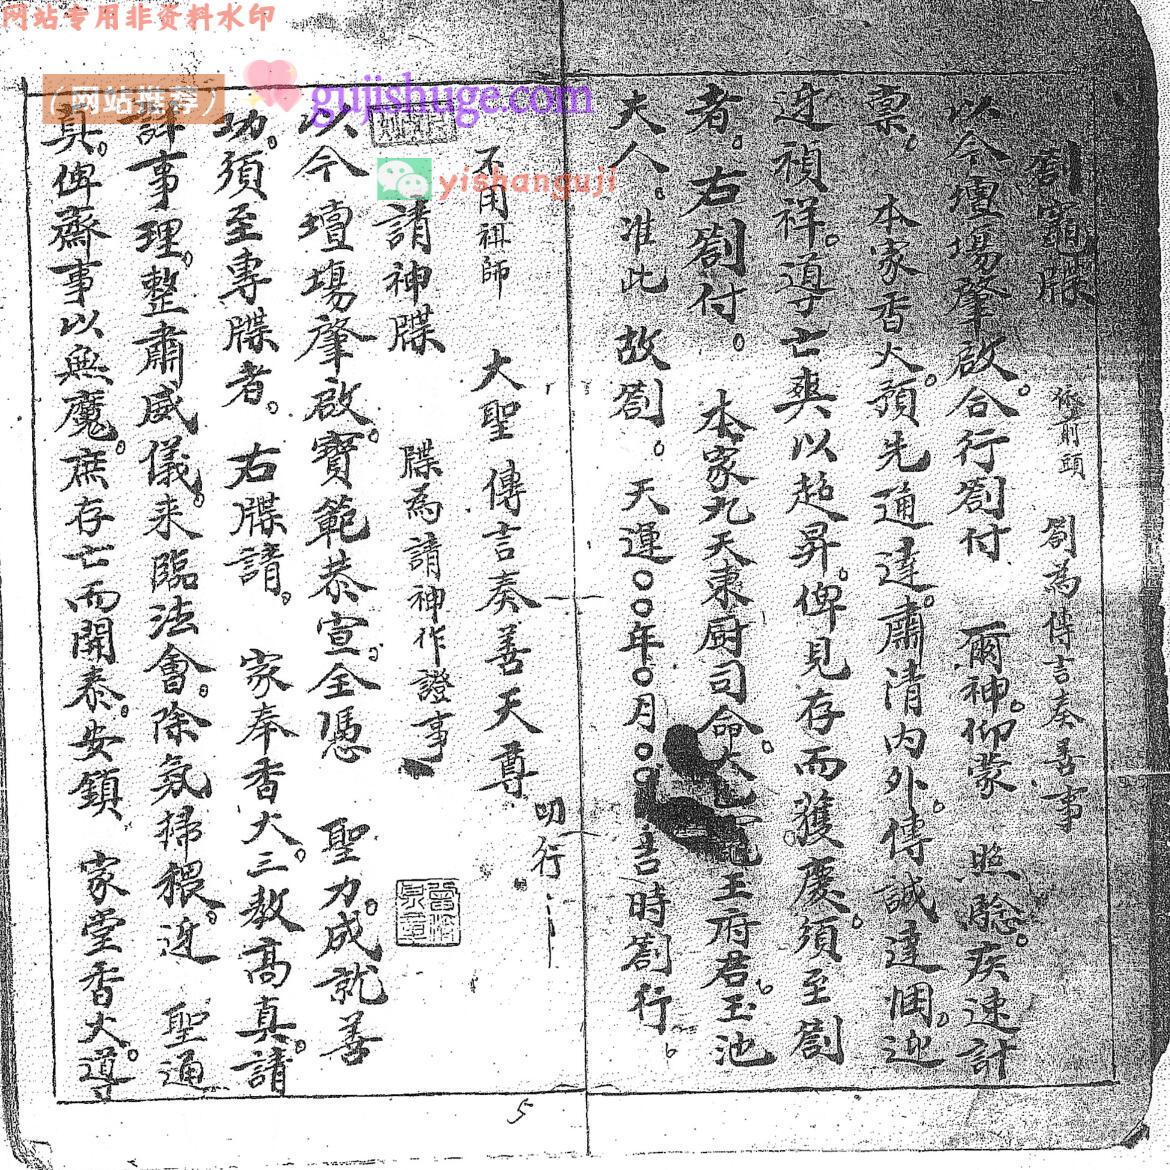 网站专用非资料水印
（网站推荐）
gujishuge.com
yishanguji
劄竈牒 依前頭 劄為傳言奏善事
以今壇場肇啟。合行劄付 爾神。仰蒙 照騐。疾速計
稟。 本家香火。預先通達。肅清内外。傳誠達悃。迎
迓禎祥。導亡爽以超昇。俾見存而獲慶。須至劄
者。右劄付。 本家九天東厨司命。太乙竈王府君。玉池
夫人。准此故劄。 天運〇〇年〇月〇〇 吉時劄行。
叩行
不用祖師 大聖傳言奏善天尊
請神牒 牒為請神作證事
以今壇場肇啟。寶範恭宣。全憑 聖力。成就善
功。須至專牒者。 右牒請。 家奉香火。三教高真。請
詳事理。整肅威儀。来臨法會。除氛掃穢。迓 聖通
真。俾齋事以無魔。庶存亡而開泰。安鎮 家堂香火。導
5